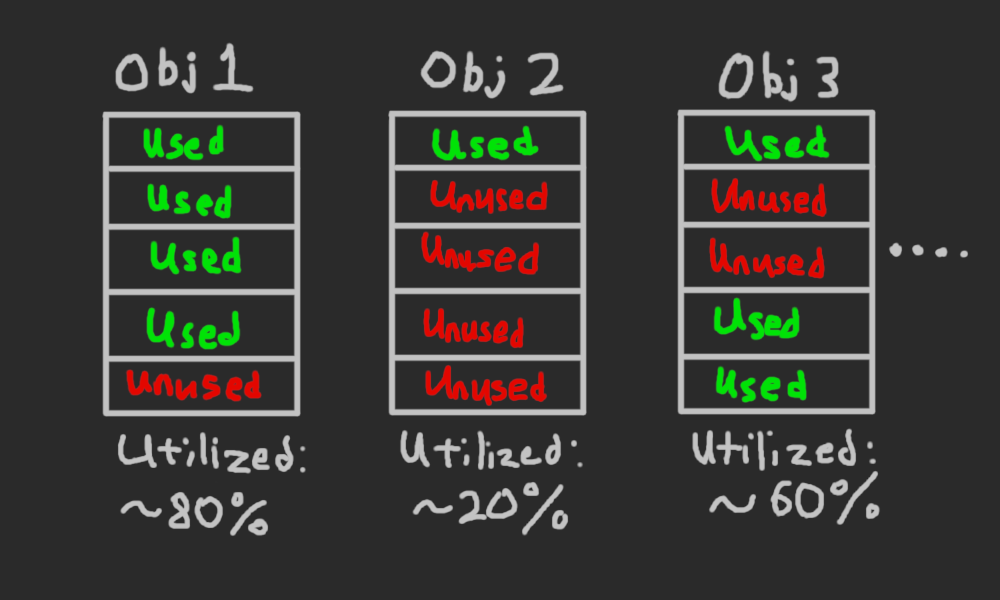 Obj 1
Used
Used
Used
Used
Unused
Utilized:
~80%
Obj 2
Used
Unused
Unused
Unused
Unused
Utilized:
~20%
Obj 3
Used
Unused
Unused
Used
Used
Utilized:
~60%
....